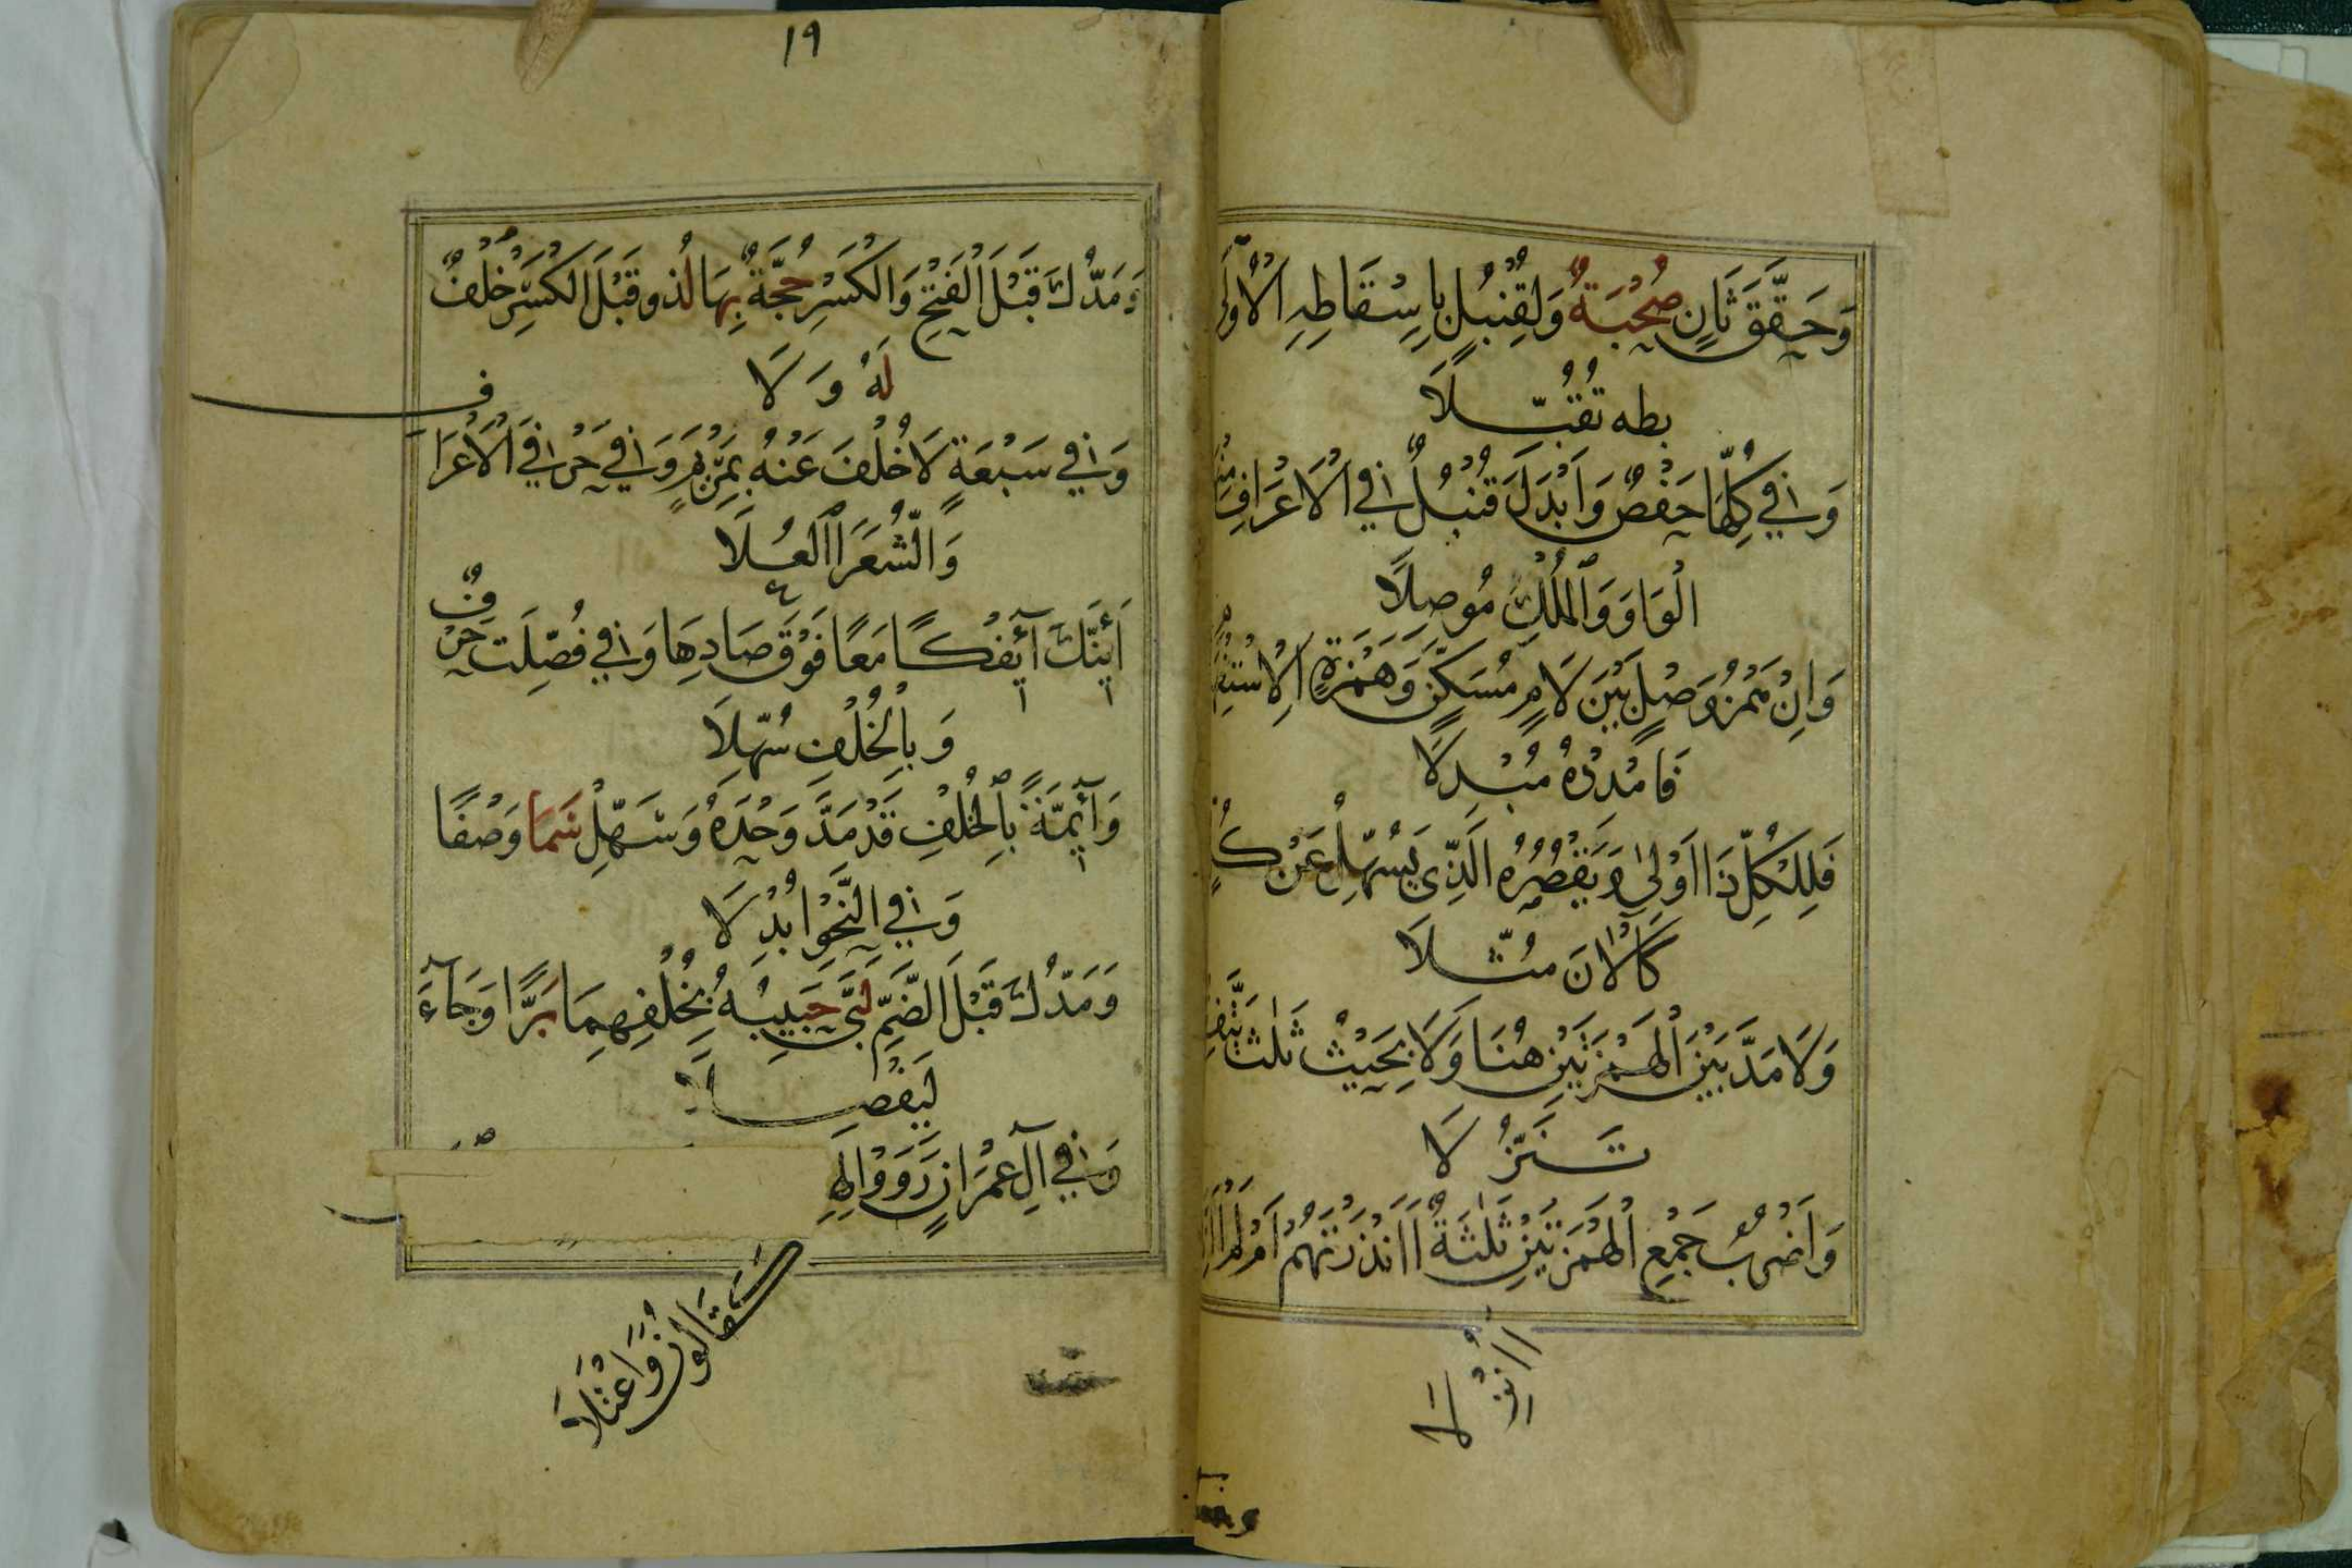 وَحَقَّقَ ثَانٍ صُحْبَةٌ وَلِقُنْبُلٍ بِاِسْقَاطِهِ الْاُوْلَى
بطه تُقُبِّلَا
وَفِي كُلِّهَا حَفْصٌ وَاَبْدَلَ قُنْبُلٌ فِي الْاَعْرَافِ مِنْهَا
الْوَاوَ وَالْمُلْكِ مُوصِلًا
وَاِنْ هَمْزُ وَصْلٍ بَيْنَ لَامٍ مُسَكَّنٍ وَهَمْزَةِ الْاِسْتِفْهَامِ
فَامْدُدْهُ مُبْدِلَا
فَلِلْكُلِّ ذَا اَوْلَى وَيَقْصُرُهُ الَّذِى يُسَهِّلُ عَنْ كُلٍّ
كَآلْانَ مُثِّلَا
وَلَا مَدَّ بَيْنَ الْهَمْزَتَيْنِ هُنَا وَلَا بِحَيْثُ ثَلٰثٌ يَتَّفِقْنَ
تَنَزُّلَا
وَاَضْرُبُ جَمْعِ الْهَمْزَتَيْنِ ثَلٰثَةٌ اَاَنْذَرْتَهُمْ اَمْ لَمْ اَئِنَّا
اَاُنْزِلَا
١٩
وَمَدُّكَ قَبْلَ الْفَتْحِ وَالْكَسْرِ حُجَّةٌ بِهَا لُذْ وَقَبْلَ الْكَسْرِ خُلْفٌ
لَهُ وَلَا
وَفِي سَبْعَةٍ لَا خُلْفَ عَنْهُ بِمَرْيَمٍ وَفِي حَرْفَيِ الْاَعْرَافِ
وَالشُّعَرَا الْعُلَا
اَئِنَّكَ آئِفْكًا مَعًا فَوْقَ صَادِهَا وَفِي فُصِّلَتْ حَرْفٌ
وَبِالْخُلْفِ سُهِّلَا
وَآئِمَّةً بِالْخُلْفِ قَدْ مَدَّ وَحْدَهُ وَسَهِّلْ سَمَا وَصْفًا
وَفِي النَّحْوِ اُبْدِلَا
وَمَدُّكَ قَبْلَ الضَّمِّ لَبَّى حَبِيبُهُ بِخُلْفِهِمَا بَرًّا وَجَآءَ
لِيَفْصِلَا
وَفِي آلِ عِمْرَانٍ رَوَوْا
قَالُونُ وَاعْتَلَا